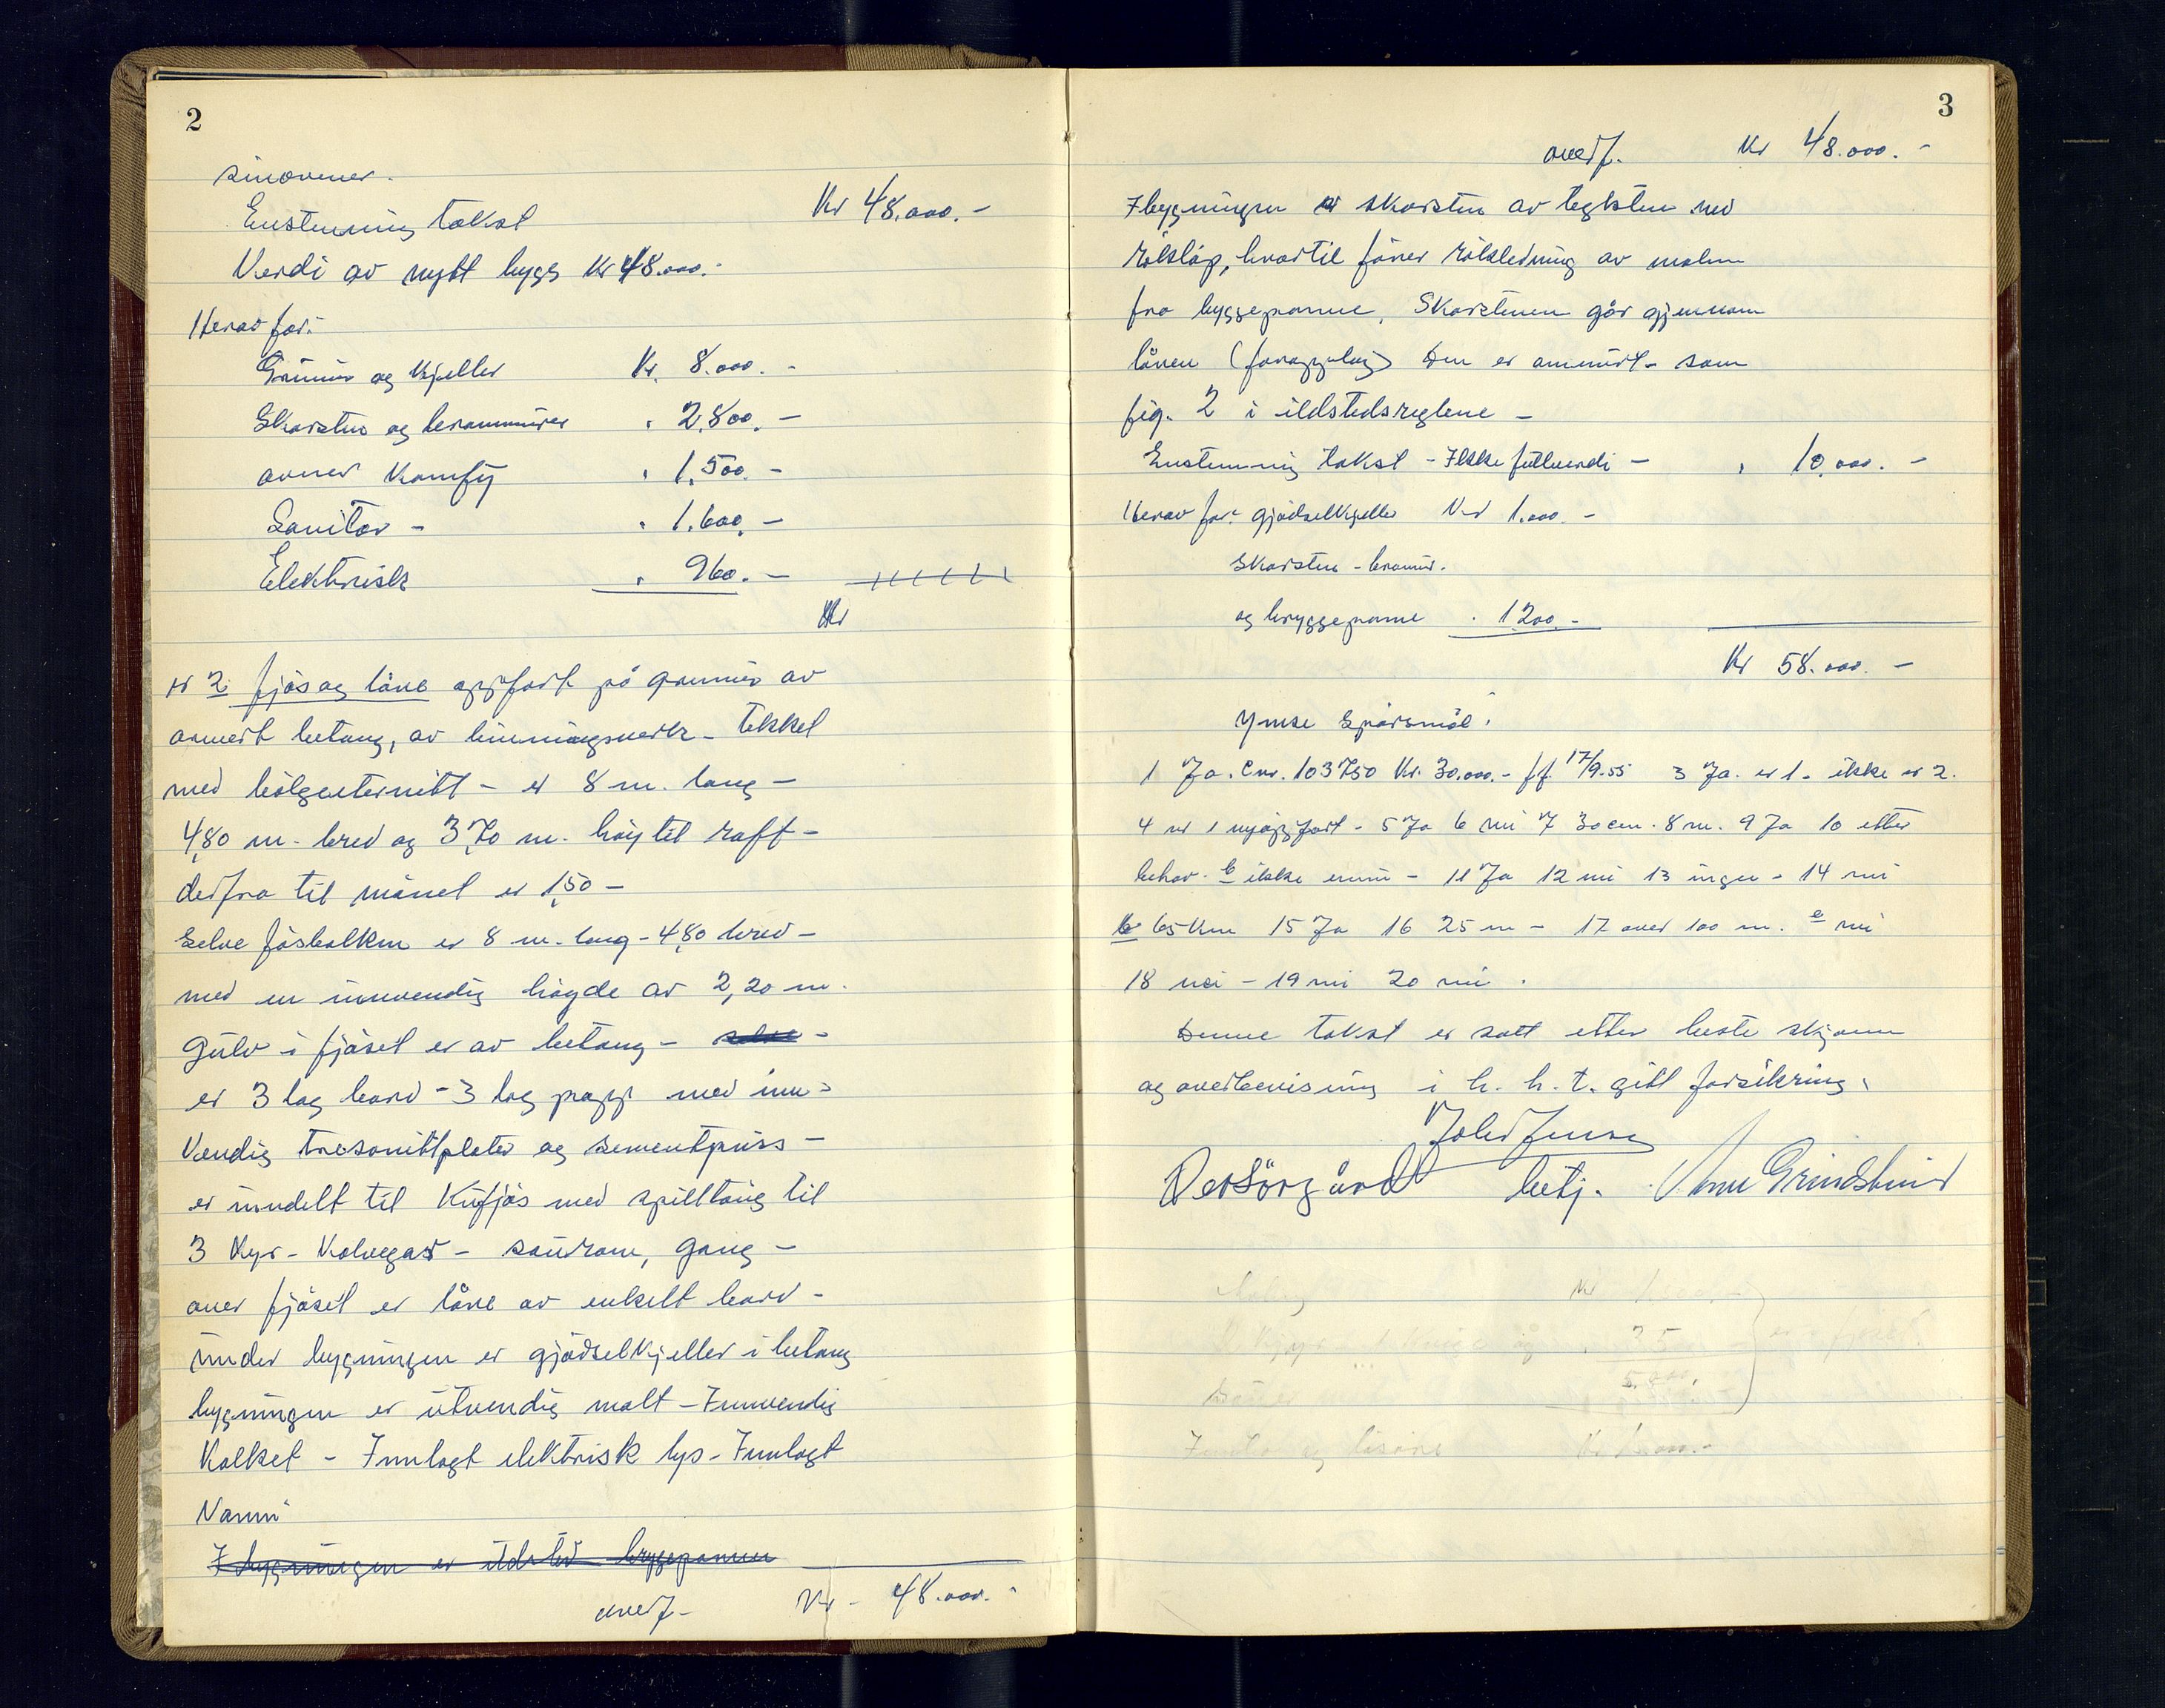 2
sinovener.
Enstemmig takst Kr 48.000.-
Verdi av nytt bygg Kr 48.000.-
Herav for:
Grunnmur og Kjeller Kr. 8.000.-
Skorsten og brannmurer " 2.800.-
ovner Komfy " 1.500.-
Sanitær - " 1.600.-
Elektrisk " 960.-
Kr
nr 2 fjøs og låve oppført på grunnmur av
armert betong, av bindingsverk - tekket
med bølgeeternitt - er 8 m. lang -
4,80 m. bred og 3,70 m. høy til raft -
derfra til mønet er 1,50 -
Selve fjøsbolken er 8 m. lang - 4,80 bred -
med en innvendig høyde av 2,20 m.
Gulv i fjøset er av betong - selve -
er 3 lag bord - 3 lag papp med inn-
vendig tresonittplater og sementpuss -
er inndelt til Kufjøs med spilltaug til
3 Kyr - Kalvegard - sauerom, gang -
over fjøset er låve av enkelt bord -
under bygningen er gjødselkjeller i betong
bygningen er utvendig malt - Innvendig
Kalket - Innlagt elektrisk lys - Innlagt
Vann
I bygningen er ildsted bryggepanne
overf- Kr - 48.000.-
3
overf. Kr 48.000.-
I bygningen er skorsten av teglsten med
røkløp, hvortil fører røkledning av malm
fra byggepanne, Skorstenen går gjennom
låven (foropplag) Den er ommurt som
fig. 2 i ildstedsreglene -
Enstemmig takst - Ikke fullverdi - " 10.000.-
Herav for: gjødselkjeller Kr 1.000.-
Skorsten - branmur.
og bryggepanne " 1200.-
Kr 58.000.-
Ymse spørsmål:
1 Ja. Cnr. 103750 Kr. 30.000.- ff 17/9.55 3 Ja. nr 1. ikke nr 2.
4 nr 1 nyoppført - 5 Ja 6 nei 7 30 cm. 8 m. 9 Ja 10 etter
behov. b ikke ennu - 11 Ja 12 nei 13 ingen - 14 nei
b 65 Km 15 Ja 16 25 m - 17 over 100 m. e nei
18 nei - 19 nei 20 nei.
Denne takst er satt etter beste skjønn
og overbevisning i h. h. t. gitt forsikring.
Joh. Jensen
Peder Sørgård betj. Arne Grindstuen
Kr
35
5.800.
Kr 1.000.-